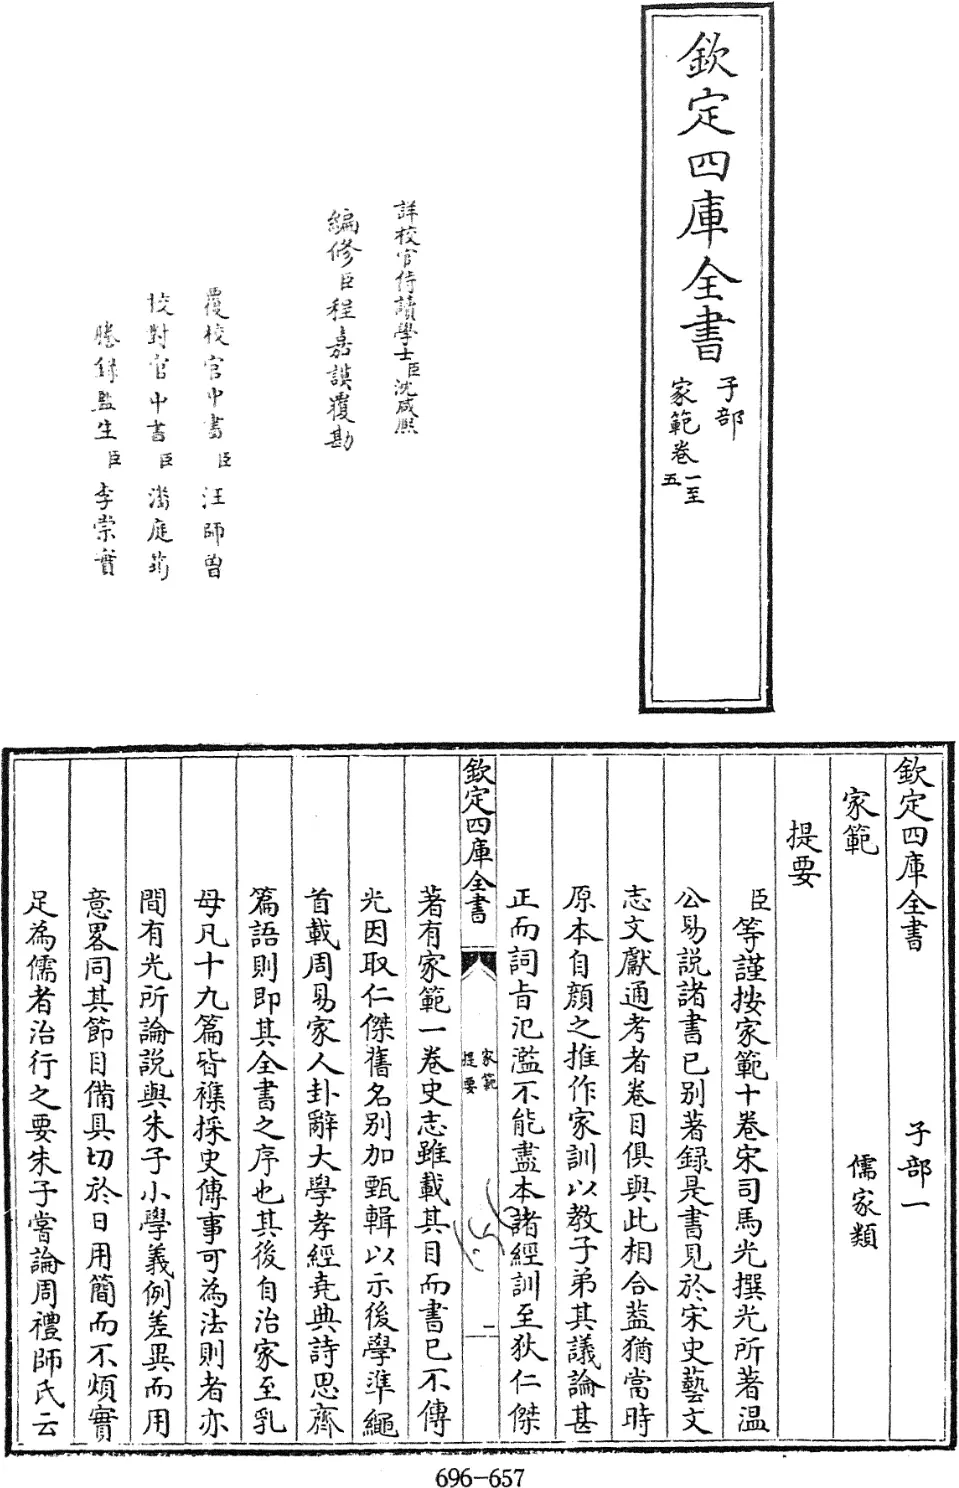 欽定四庫全書
子部
家範卷一至五
詳校官侍讀學士臣沈咸熙
編修臣程嘉謨覆勘
覆校官中書臣汪師曾
校對官中書臣潘庭筠
謄錄監生臣李崇實
欽定四庫全書 子部一
家範 儒家類
提要
臣等謹按家範十卷宋司馬光撰光所著溫
公易說諸書已別著錄是書見於宋史藝文
志文獻通考者卷目俱與此相合葢猶當時
原本自顏之推作家訓以教子弟其議論甚
正而詞旨汜濫不能盡本諸經訓至狄仁傑
欽定四庫全書
家範
提要
一
著有家範一卷史志雖載其目而書已不傳
光因取仁傑舊名別加甄輯以示後學準繩
首載周易家人卦辭大學孝經堯典詩思齊
篇語則即其全書之序也其後自治家至乳
母凡十九篇皆襍採史傳事可為法則者亦
間有光所論說與朱子小學義例差異而用
意畧同其節目備具切於日用簡而不煩實
足為儒者治行之要朱子嘗論周禮師氏云
696-657